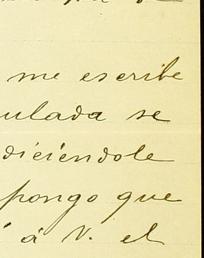 me escribe
ulada se
diciéndole
pongo que
á V. el